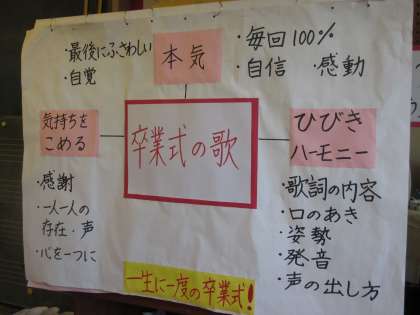 ・最後にふさわしい
・自覚
本気
・毎回100%
・自信 ・感動
気持ちを
こめる
卒業式の歌
ひびき
ハーモニー
・感謝
・一人一人の
存在・声
・心を一つに
・歌詞の内容
・口のあき
・姿勢
・発音
・声の出し方
一生に一度の卒業式!